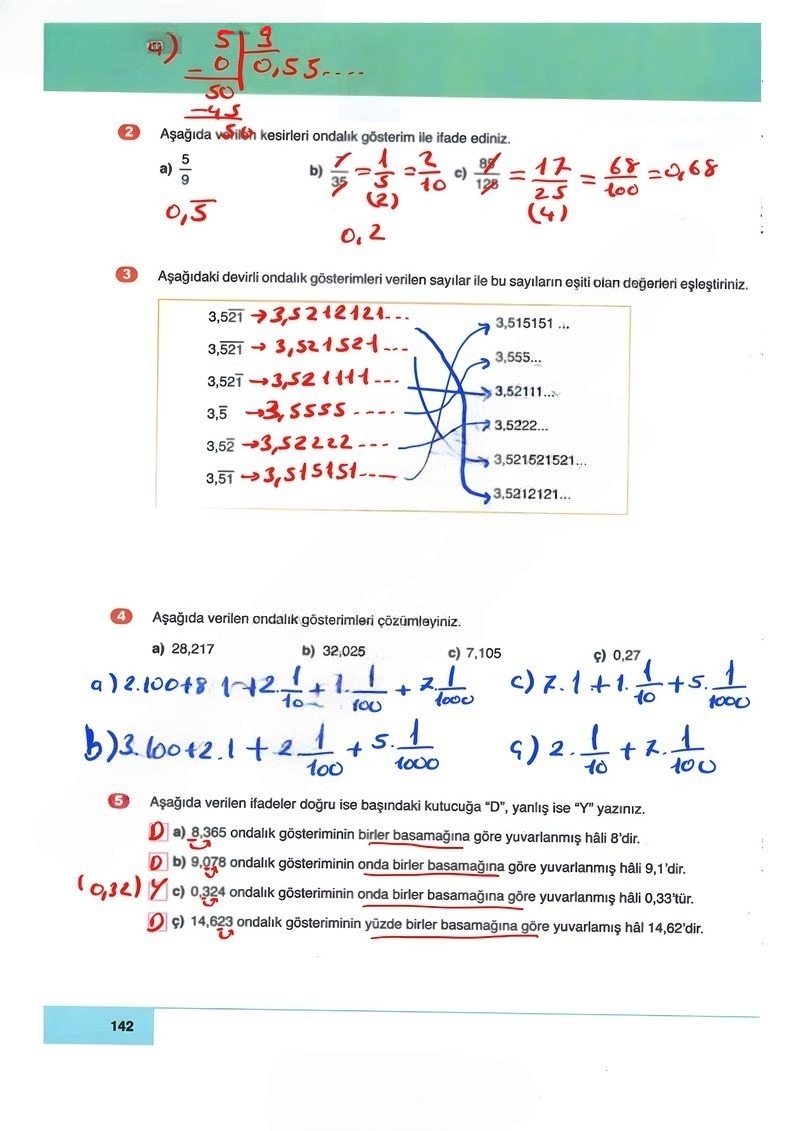 a) 5 | 9
- 0 0,55....
50
- 45
50
2 Aşağıda verilen kesirleri ondalık gösterim ile ifade ediniz.
a) 5/9 b) 7/35 = 1/5 = 2/10 c) 85/125 = 17/25 = 68/100 = 0,68
(2) (4)
0,5̅
0,2
3 Aşağıdaki devirli ondalık gösterimleri verilen sayılar ile bu sayıların eşiti olan değerleri eşleştiriniz.
3,52̅1̅ → 3,5212121... 3,515151 ...
3,5̅2̅1̅ → 3,521521... 3,555...
3,521̅ → 3,521111... 3,52111...
3,5̅ → 3,5555 .... 3,5222...
3,52̅ → 3,52222 ... 3,521521521...
3,5̅1̅ → 3,515151.... 3,5212121...
4 Aşağıda verilen ondalık gösterimleri çözümleyiniz.
a) 28,217 b) 32,025 c) 7,105 ç) 0,27
a) 2.100+8 1+2.1/10 + 1.1/100 + 7.1/1000 c) 7.1+1.1/10 + 5.1/1000
b) 3.100+2.1 + 2.1/100 + 5.1/1000 ç) 2.1/10 + 7.1/100
5 Aşağıda verilen ifadeler doğru ise başındaki kutucuğa “D”, yanlış ise “Y” yazınız.
D a) 8,365 ondalık gösteriminin birler basamağına göre yuvarlanmış hâli 8’dir.
D b) 9,078 ondalık gösteriminin onda birler basamağına göre yuvarlanmış hâli 9,1’dir.
(0,32) Y c) 0,324 ondalık gösteriminin onda birler basamağına göre yuvarlanmış hâli 0,33’tür.
D ç) 14,623 ondalık gösteriminin yüzde birler basamağına göre yuvarlamış hâl 14,62’dir.
142